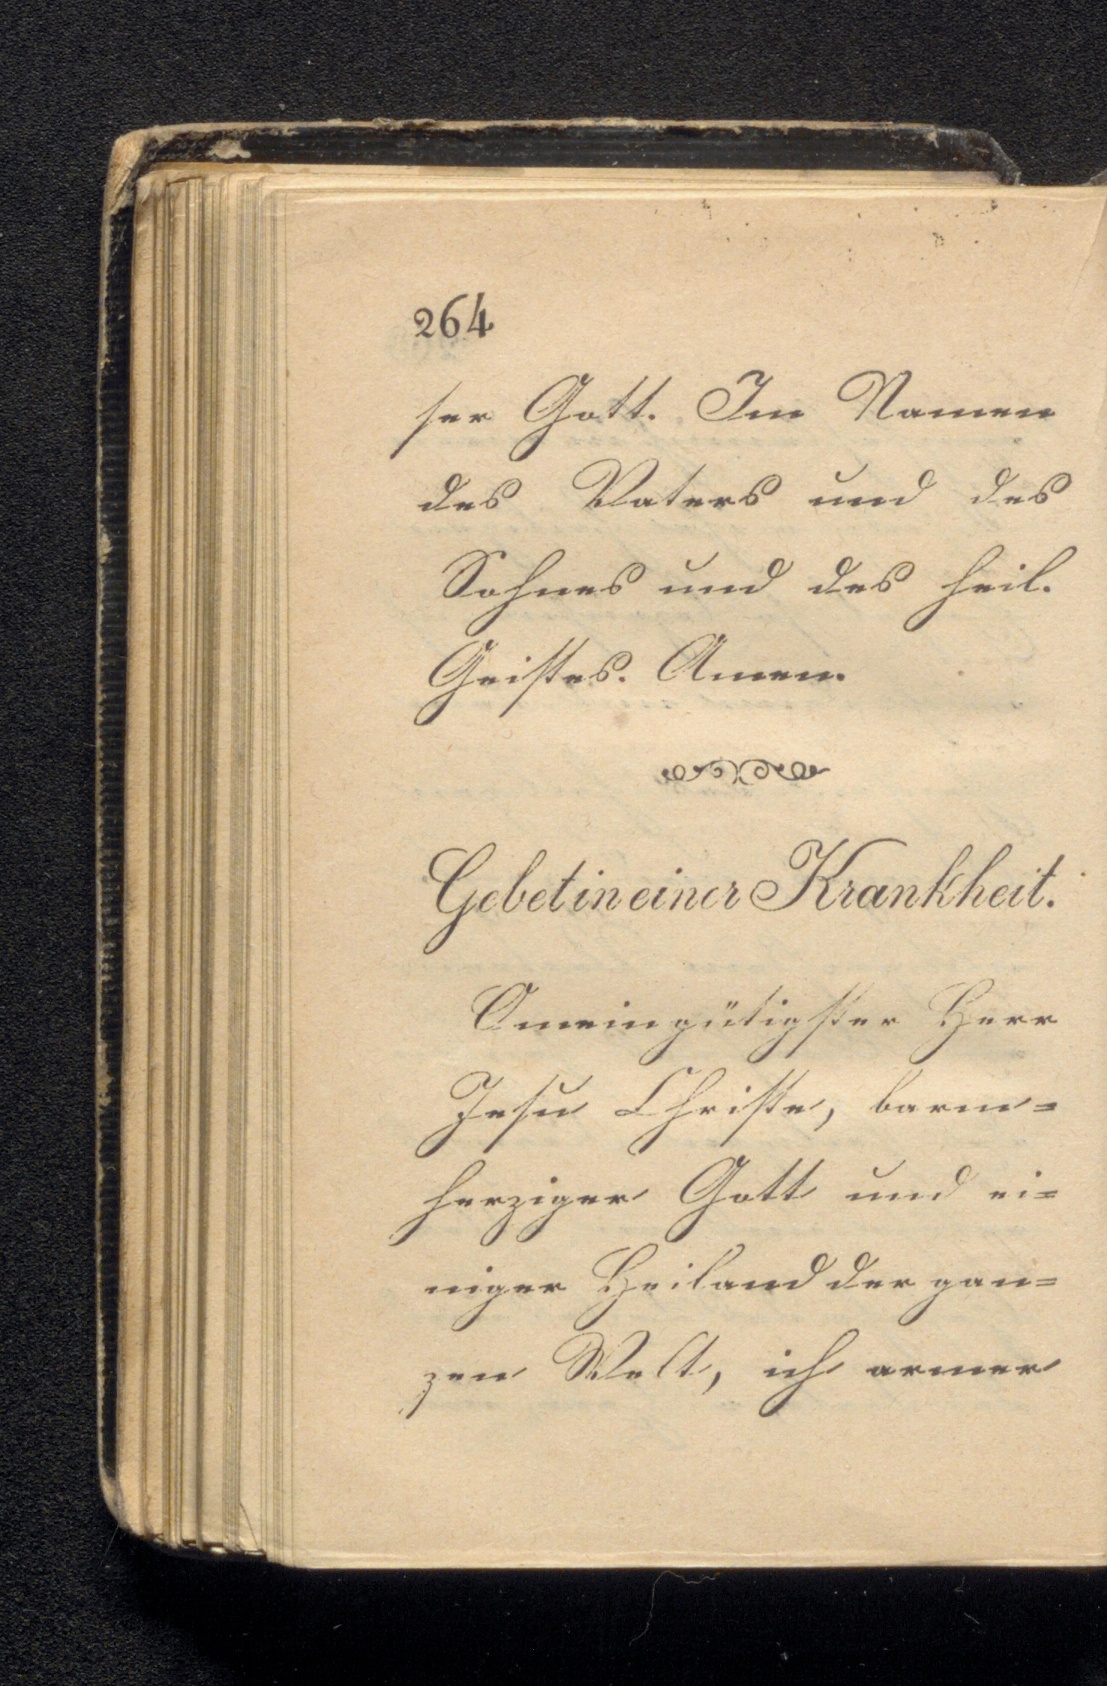 264
ser Gott. Im Namen
des Vaters und des
Sohnes und des heil.
Geistes. Amen.
Gebet in einer Krankheit.
O mein gütigster Herr
Jesu Christe, barm=
herziger Gott und ei=
niger Heiland der gan=
zen Welt, ich armer